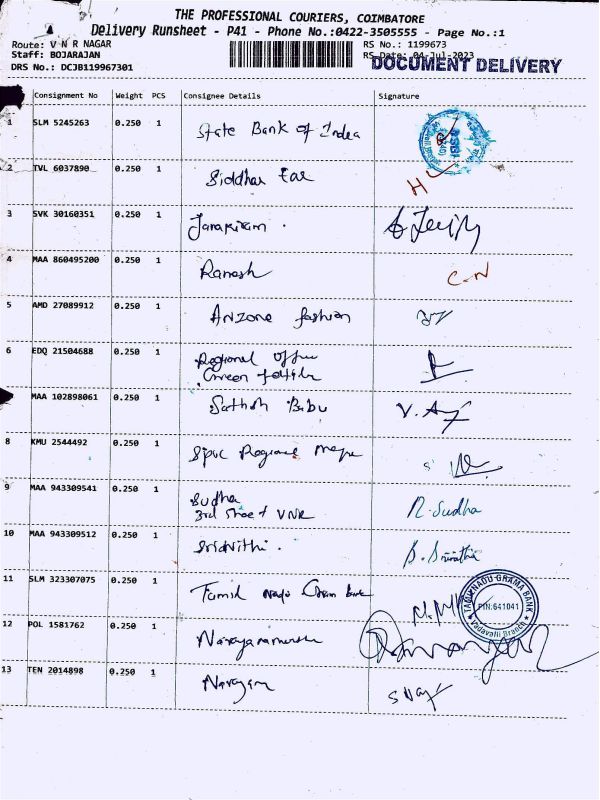 THE PROFESSIONAL COURIERS, COIMBATORE
Delivery Runsheet - P41 - Phone No.:0422-3505555 - Page No.:1
Route: V N R NAGAR
RS No.: 1199673
Staff: BOJARAJAN
RS Date: 04-Jul-2023
DRS No.: DCJB119967301
DOCUMENT DELIVERY
Consignment No Weight PCS Consignee Details Signature
1 SLM 5245263 0.250 1 State Bank of India
2 TVL 6037890 0.250 1 Siddhar
3 SVK 30160351 0.250 1
4 MAA 860495200 0.250 1 Ramesh C.N
5 AMD 27089912 0.250 1 Anzone fashion
6 EDQ 21504688 0.250 1 Regional Office
MAA 102898061 0.250 1 Sathish Babu
8 KMU 2544492 0.250 1 Sipuc Regional
9 MAA 943309541 0.250 1 Sudha R. Sudha
3rd Street VNR
10 MAA 943309512 0.250 1
11 SLM 323307075 0.250 1 Tamil Nadu Bank
TAMILNADU GRAMA BANK
PIN:641041
Vadavalli Branch
12 POL 1581762 0.250 1
13 TEN 2014898 0.250 1 Narayan